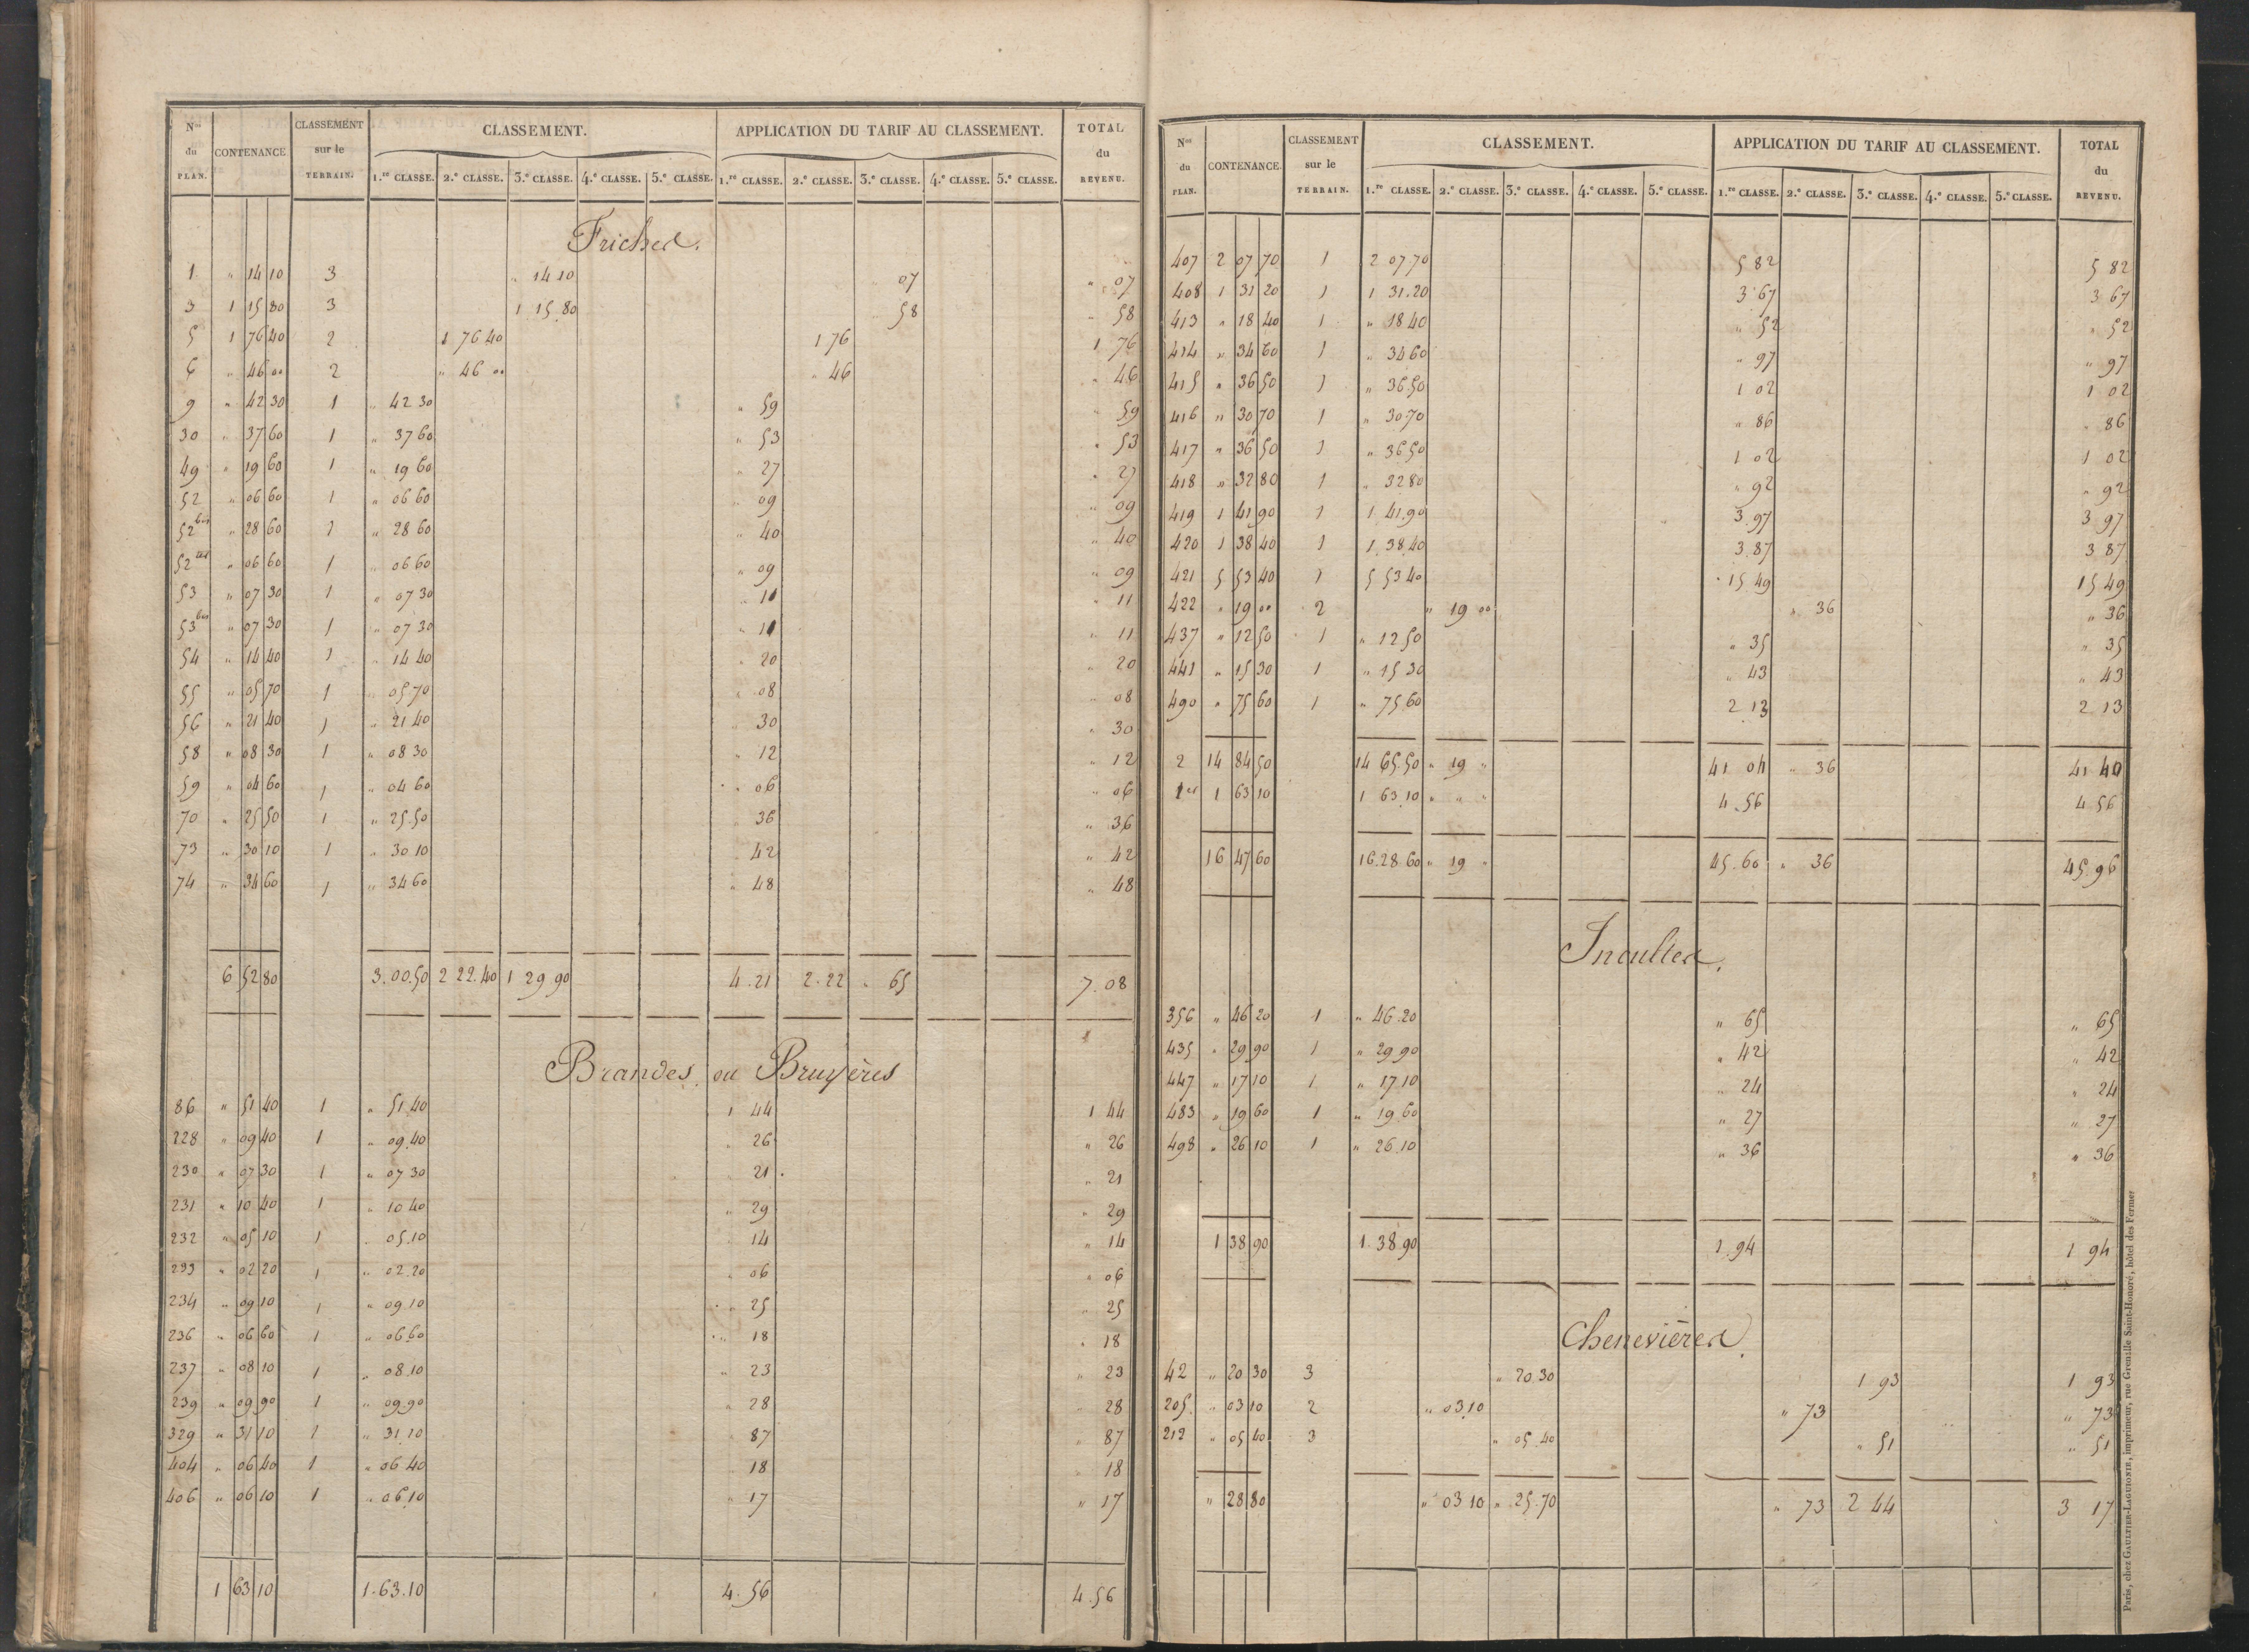 Nos du PLAN. CONTENANCE CLASSEMENT sur le TERRAIN. CLASSEMENT. APPLICATION DU TARIF AU CLASSEMENT. TOTAL du REVENU.
1.re CLASSE. 2.e CLASSE. 3.e CLASSE. 4.e CLASSE. 5.e CLASSE. 1.re CLASSE. 2.e CLASSE. 3.e CLASSE. 4.e CLASSE. 5.e CLASSE.
Friches.
1 " 14 10 3 " 14 10 " 07 " 07
3 1 15 80 3 1 15 80 " 58 " 58
5 1 76 40 2 1 76 40 1 76 1 76
6 " 46 00 2 " 46 00 " 46 " 46
9 " 42 30 1 " 42 30 " 59 " 59
30 " 37 60 1 " 37 60 " 53 " 53
49 " 19 60 1 " 19 60 " 27 " 27
52 " 06 60 1 " 06 60 " 09 " 09
52 bis " 28 60 1 " 28 60 " 40 " 40
52 ter " 06 60 1 " 06 60 " 09 " 09
53 " 07 30 1 " 07 30 " 11 " 11
53 bis " 07 30 1 " 07 30 " 11 " 11
54 " 14 40 1 " 14 40 " 20 " 20
55 " 05 70 1 " 05.70 " 08 " 08
56 " 21 40 1 " 21 40 " 30 " 30
58 " 08 30 1 " 08 30 " 12 " 12
59 " 04 60 1 " 04 60 " 06 " 06
70 " 25 50 1 " 25.50 " 36 " 36
73 " 30 10 1 " 30 10 " 42 " 42
74 " 34 60 1 " 34 60 " 48 " 48
6 52 80 3.00.50 2 22.40 1 29 90 4.21 2.22 " 65 7.08
Brandes ou Bruyères
86 " 51 40 1 " 51.40 1 44 1 44
228 " 09 40 1 " 09.40 " 26 " 26
230 " 07 30 1 " 07 30 " 21 " 21
231 " 10 40 1 " 10 40 " 29 " 29
232 " 05 10 1 " 05.10 " 14 " 14
233 " 02 20 1 " 02.20 " 06 " 06
234 " 09 10 1 " 09.10 " 25 " 25
236 " 06 60 1 " 06.60 " 18 " 18
237 " 08 10 1 " 08.10 " 23 " 23
239 " 09 90 1 " 09.90 " 28 " 28
329 " 31 10 1 " 31.10 " 87 " 87
404 " 06 40 1 " 06 40 " 18 " 18
406 " 06 10 1 " 06.10 " 17 " 17
1 63 10 1.63.10 4.56 4.56
Nos du PLAN. CONTENANCE. CLASSEMENT sur le TERRAIN. CLASSEMENT. APPLICATION DU TARIF AU CLASSEMENT. TOTAL du REVENU.
1.re CLASSE. 2.e CLASSE. 3.e CLASSE. 4.e CLASSE. 5.e CLASSE. 1.re CLASSE. 2.e CLASSE. 3.e CLASSE. 4.e CLASSE. 5.e CLASSE.
407 2 07 70 1 2 07.70 5 82 5 82
408 1 31 20 1 1 31.20 3 67 3 67
413 " 18 40 1 " 18 40 " 52 " 52
414 " 34 60 1 " 34 60 " 97 " 97
415 " 36 50 1 " 36.50 1 02 1 02
416 " 30 70 1 " 30.70 " 86 " 86
417 " 36 50 1 " 36.50 1 02 1 02
418 " 32 80 1 " 32 80 " 92 " 92
419 1 41 90 1 1 41.90 3.97 3 97
420 1 38 40 1 1.38.40 3.87 3 87
421 5 53 40 1 5 53 40 15 49 15 49
422 " 19 00 2 " 19 00 " 36 " 36
437 " 12 50 1 " 12 50 " 35 " 35
441 " 15 30 1 " 15 30 " 43 " 43
490 " 75 60 1 " 75.60 2 13 2 13
2 14 84 50 14 65.50 " 19 " 41 04 " 36 41 40
1re 1 63 10 1 63.10 " " " 4.56 4 56
16 47 60 16.28.60 " 19 " 45.60 " 36 45.96
Incultes.
356 " 46 20 1 " 46.20 " 65 " 65
435 " 29 90 1 " 29 90 " 42 " 42
447 " 17 10 1 " 17.10 " 24 " 24
483 " 19 60 1 " 19.60 " 27 " 27
498 " 26 10 1 " 26.10 " 36 " 36
1 38 90 1.38.90 1.94 1 94
Chenevières.
42 " 20 30 3 " 20.30 1 93 1 93
205. " 03 10 2 " 03.10 " 73 " 73
212 " 05 40 3 " 05.40 " 51 " 51
" 28 80 " 03 10 " 25.70 " 73 2 44 3 17
Paris, chez GAULTIER-LAGUIONIE, imprimeur, rue Grenelle Saint-Honoré, hôtel des Fermes